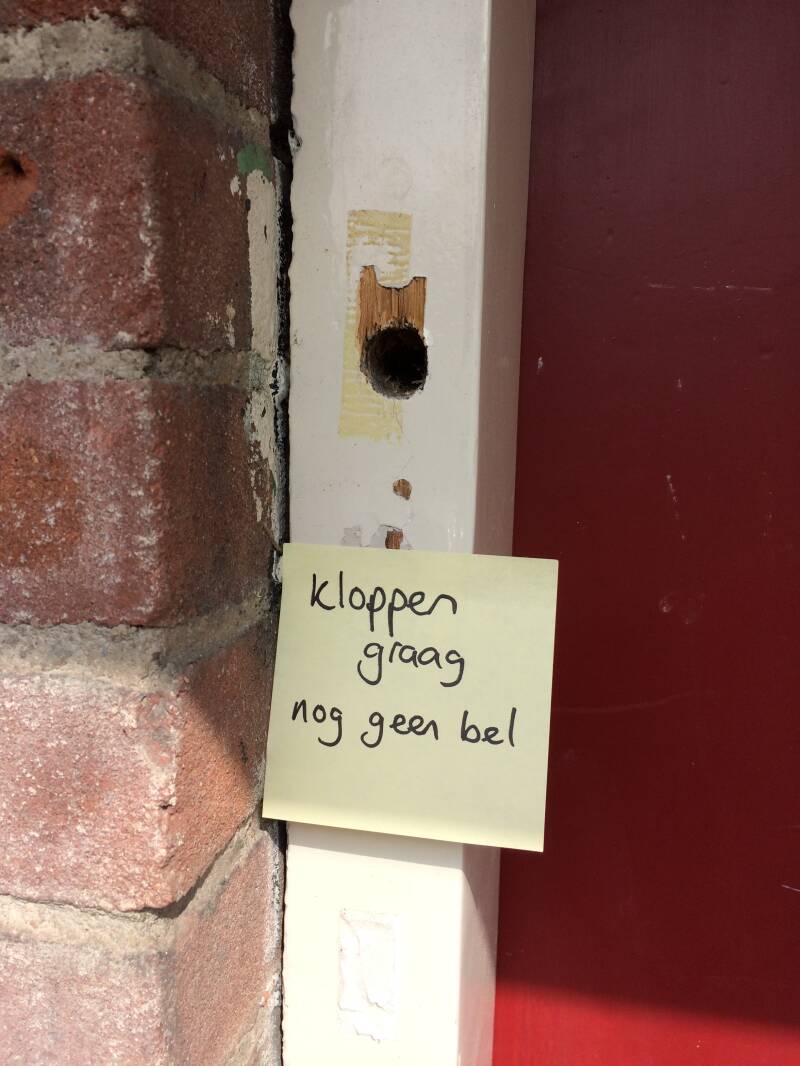 kloppen
graag
nog geen bel